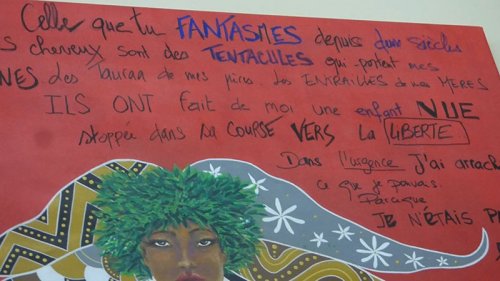 Celle que tu FANTASMES depuis deux siècles
S cheveux sont des TENTACULES qui portent mes
NES des de mes pères. Les ENTRAILLES de mes MERES
ILS ONT fait de moi une enfant NUE
stoppée dans sa COURSE VERS la LIBERTE
Dans l'urgence J'ai arrach
ce que je pouvais.
Parceque
JE N'ETAIS P